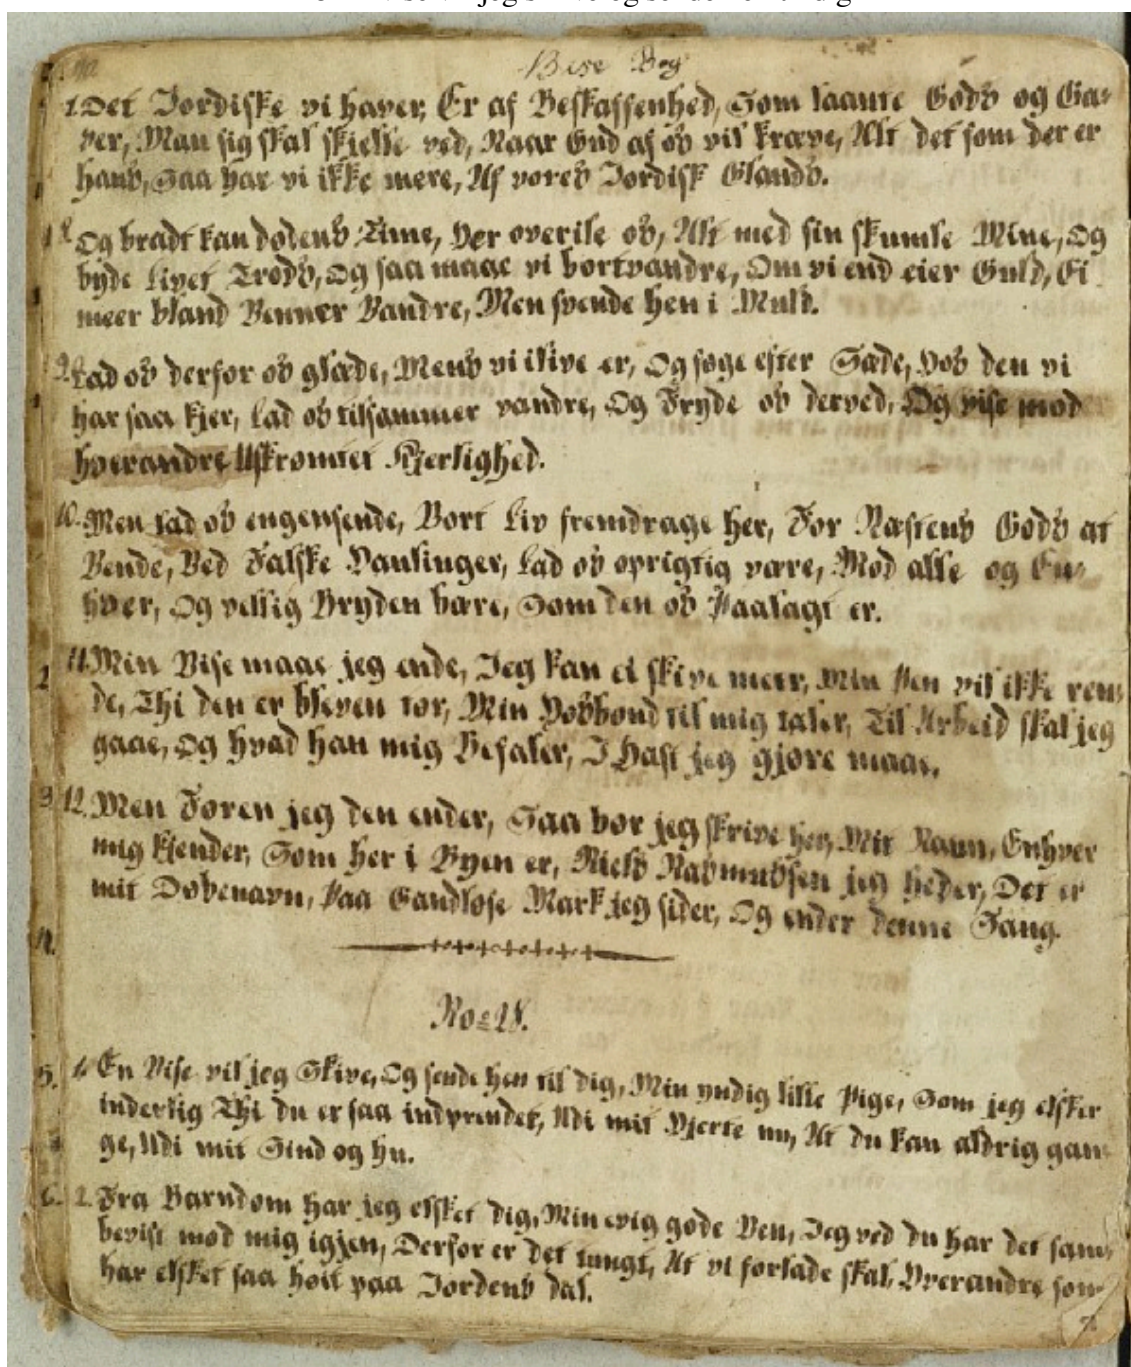 Vise Bog
7. Det Jordiske vi haver, Er af Beskaffenhed, Som laante Gods og Ga-
ver, Man sig skal skjelle ved, Naar Gud af os vil kræve, Alt det som der er
hans, Saa har vi ikke mere, Af vores Jordisk Glands.
8. Og bradt kan dødens Time, Her overile os, Alt med sin skumle Mine, Og
byde livet Trods, Og saa maae vi bortvandre, Om vi end eier Guld, Ei
meer bland Venner Vandre, Men svende hen i Muld.
9. Lad os derfor os glæde, Mens vi ilive er, Og søge efter Sæde, Hos den vi
har saa kjer, Lad os tilsammer vandre, Og Fryde os derved, Og vise mod
hverandre Uskrømtet Kjerlighed.
10. Men lad os engensende, Vort Liv fremdrage her, For Næstens Gods at
Vende, Ved Falske Handlinger, Lad os oprigtig være, Mod alle og En-
hver, Og vellig Bryden bære, Som den os Paalagt er.
11. Min Vise maae jeg ende, Jeg kan ei skive meer, Min Pen vil ikke ren-
de, Thi den er bleven tør, Min Hosbond til mig taler, Til Arbeid skal jeg
gaae, Og hvad han mig Befaler, I Hast jeg gjøre maae.
12. Men Føren jeg den ender, Saa bør jeg skrive her, Mit Navn, Enhver
mig kjender, Som her i Byen er, Niels Rasmussen jeg heder, Det er
mit Døbenavn, Paa Gandløse Mark jeg sider, Og ender denne Sang.
No 28.
1. En Vise vil jeg Skive, Og sende hen til dig, Min yndig lille Pige, Som jeg elsker
inderlig Thi du er saa indprendet, Udi mit Hjerte nu, At du kan aldrig gan-
ge, Udi mit Sind og hu.
2. Fra Barndom har jeg elsket dig, Min evig gode Ven, Jeg ved du har det sam-
bevist mod mig igjen, Derfor er det tungt, At vi forlade skal, Hverandre som
har elsket saa høit paa Jordens dal.